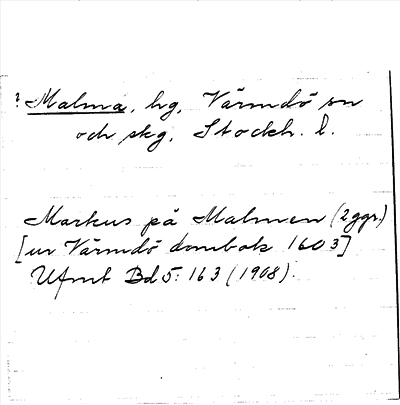 ? Malma, hg, Värmdö sn
och skg, Stockh. l.
Markus på Malmen (2ggr.)
[ur Värmdö dombok 1603]
Ufmt Bd 5: 163 (1908).